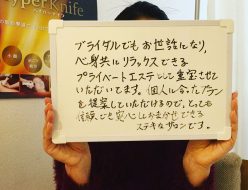 yper Knife
ブライダルでもお世話になり、
心身共にリラックスできる
プライベートエステとして重宝させて
いただいてます。個人に合ったプラン
を提案していただけるので、とっても
信頼でき安心しておまかせできる
ステキなサロンです。